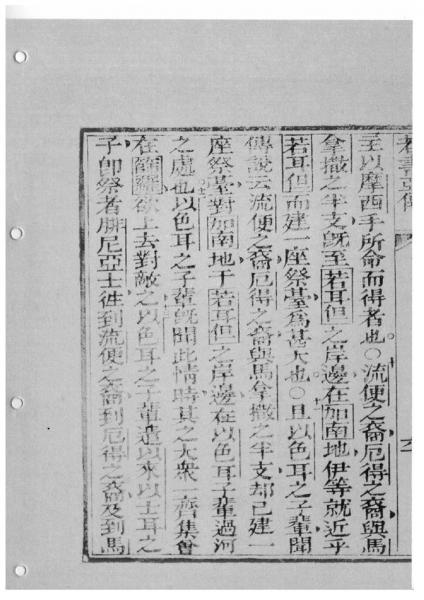 若書亞傳
主以摩西手所命而得者也○流便之裔厄得之裔與馬
拿撒之半支旣至若耳但之岸邊在加南地伊等就近乎
若耳但而建一座祭臺爲甚大也○且以色耳之子輩聞
傳說云流便之裔厄得之裔與馬拿撒之半支却已建一
座祭臺對加南地于若耳但之岸邊在以色耳子輩過河
之處也以色耳之子輩旣聞此情時其之大衆一齊集會
在 欲上去對敵之以色耳之子輩遣以來以士耳之
子卽祭者 尼亞士徃到流便之裔到厄得之裔及到馬